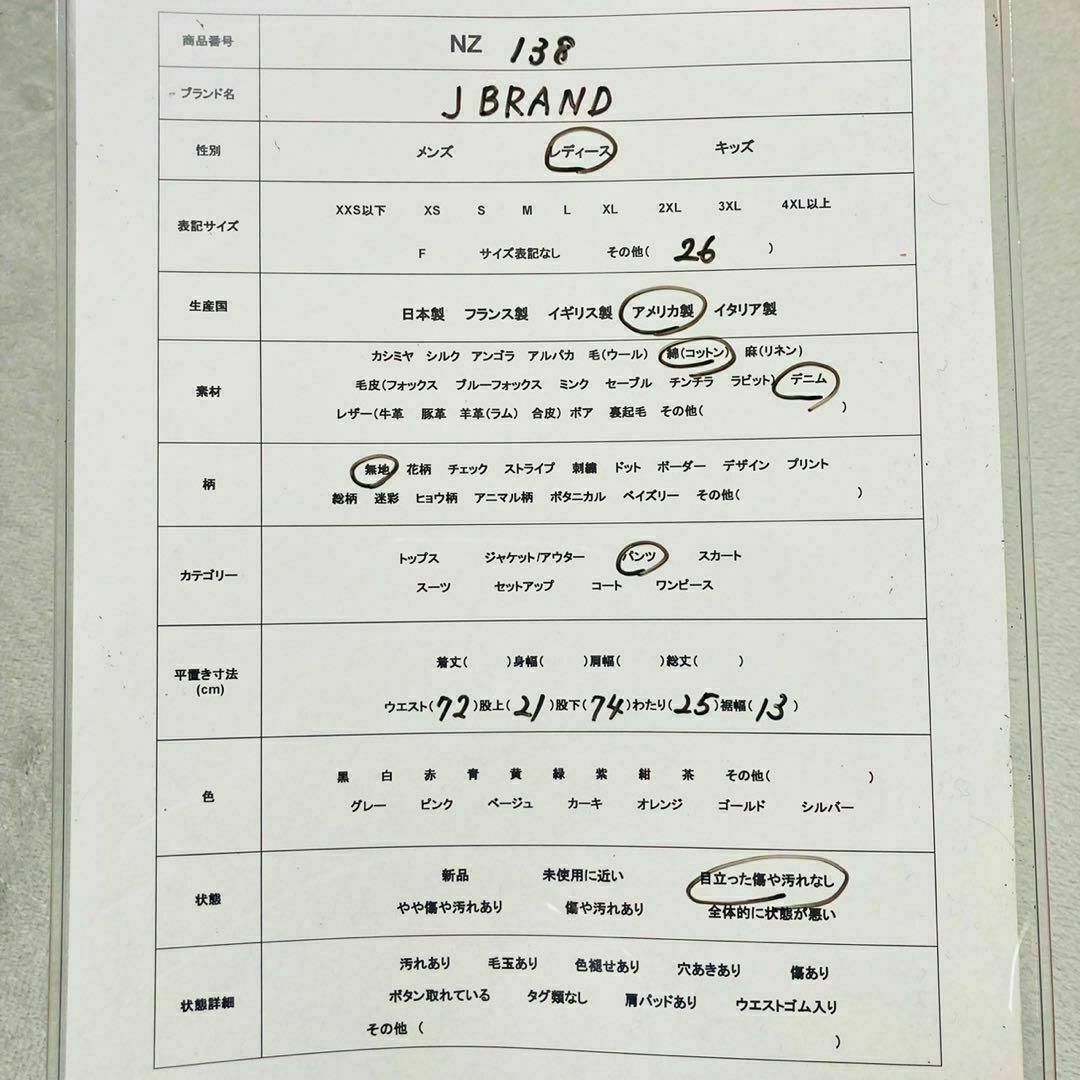 商品番号 NZ 138
ブランド名 J BRAND
性別 メンズ レディース キッズ
表記サイズ
XXS以下 XS S M L XL 2XL 3XL 4XL以上
F サイズ表記なし その他( 26 )
生産国 日本製 フランス製 イギリス製 アメリカ製 イタリア製
素材
カシミヤ シルク アンゴラ アルパカ 毛(ウール) 綿(コットン) 麻(リネン)
毛皮(フォックス ブルーフォックス ミンク セーブル チンチラ ラビット) デニム
レザー(牛革 豚革 羊革(ラム) 合皮) ボア 裏起毛 その他( )
柄
無地 花柄 チェック ストライプ 刺繍 ドット ボーダー デザイン プリント
総柄 迷彩 ヒョウ柄 アニマル柄 ボタニカル ペイズリー その他( )
カテゴリー
トップス ジャケット/アウター パンツ スカート
スーツ セットアップ コート ワンピース
平置き寸法
(cm)
着丈( )身幅( )肩幅( )総丈( )
ウエスト(72)股上(21)股下(74)わたり(25)裾幅(13)
色
黒 白 赤 青 黄 緑 紫 紺 茶 その他( )
グレー ピンク ベージュ カーキ オレンジ ゴールド シルバー
状態
新品 未使用に近い 目立った傷や汚れなし
やや傷や汚れあり 傷や汚れあり 全体的に状態が悪い
状態詳細
汚れあり 毛玉あり 色褪せあり 穴あきあり 傷あり
ボタン取れている タグ類なし 肩パッドあり ウエストゴム入り
その他 ( )